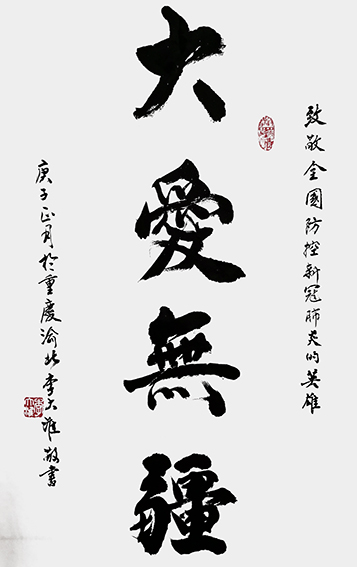 致敬全國防控新冠肺炎的英雄
大愛無疆
庚子正月於重慶渝北李大維敬書